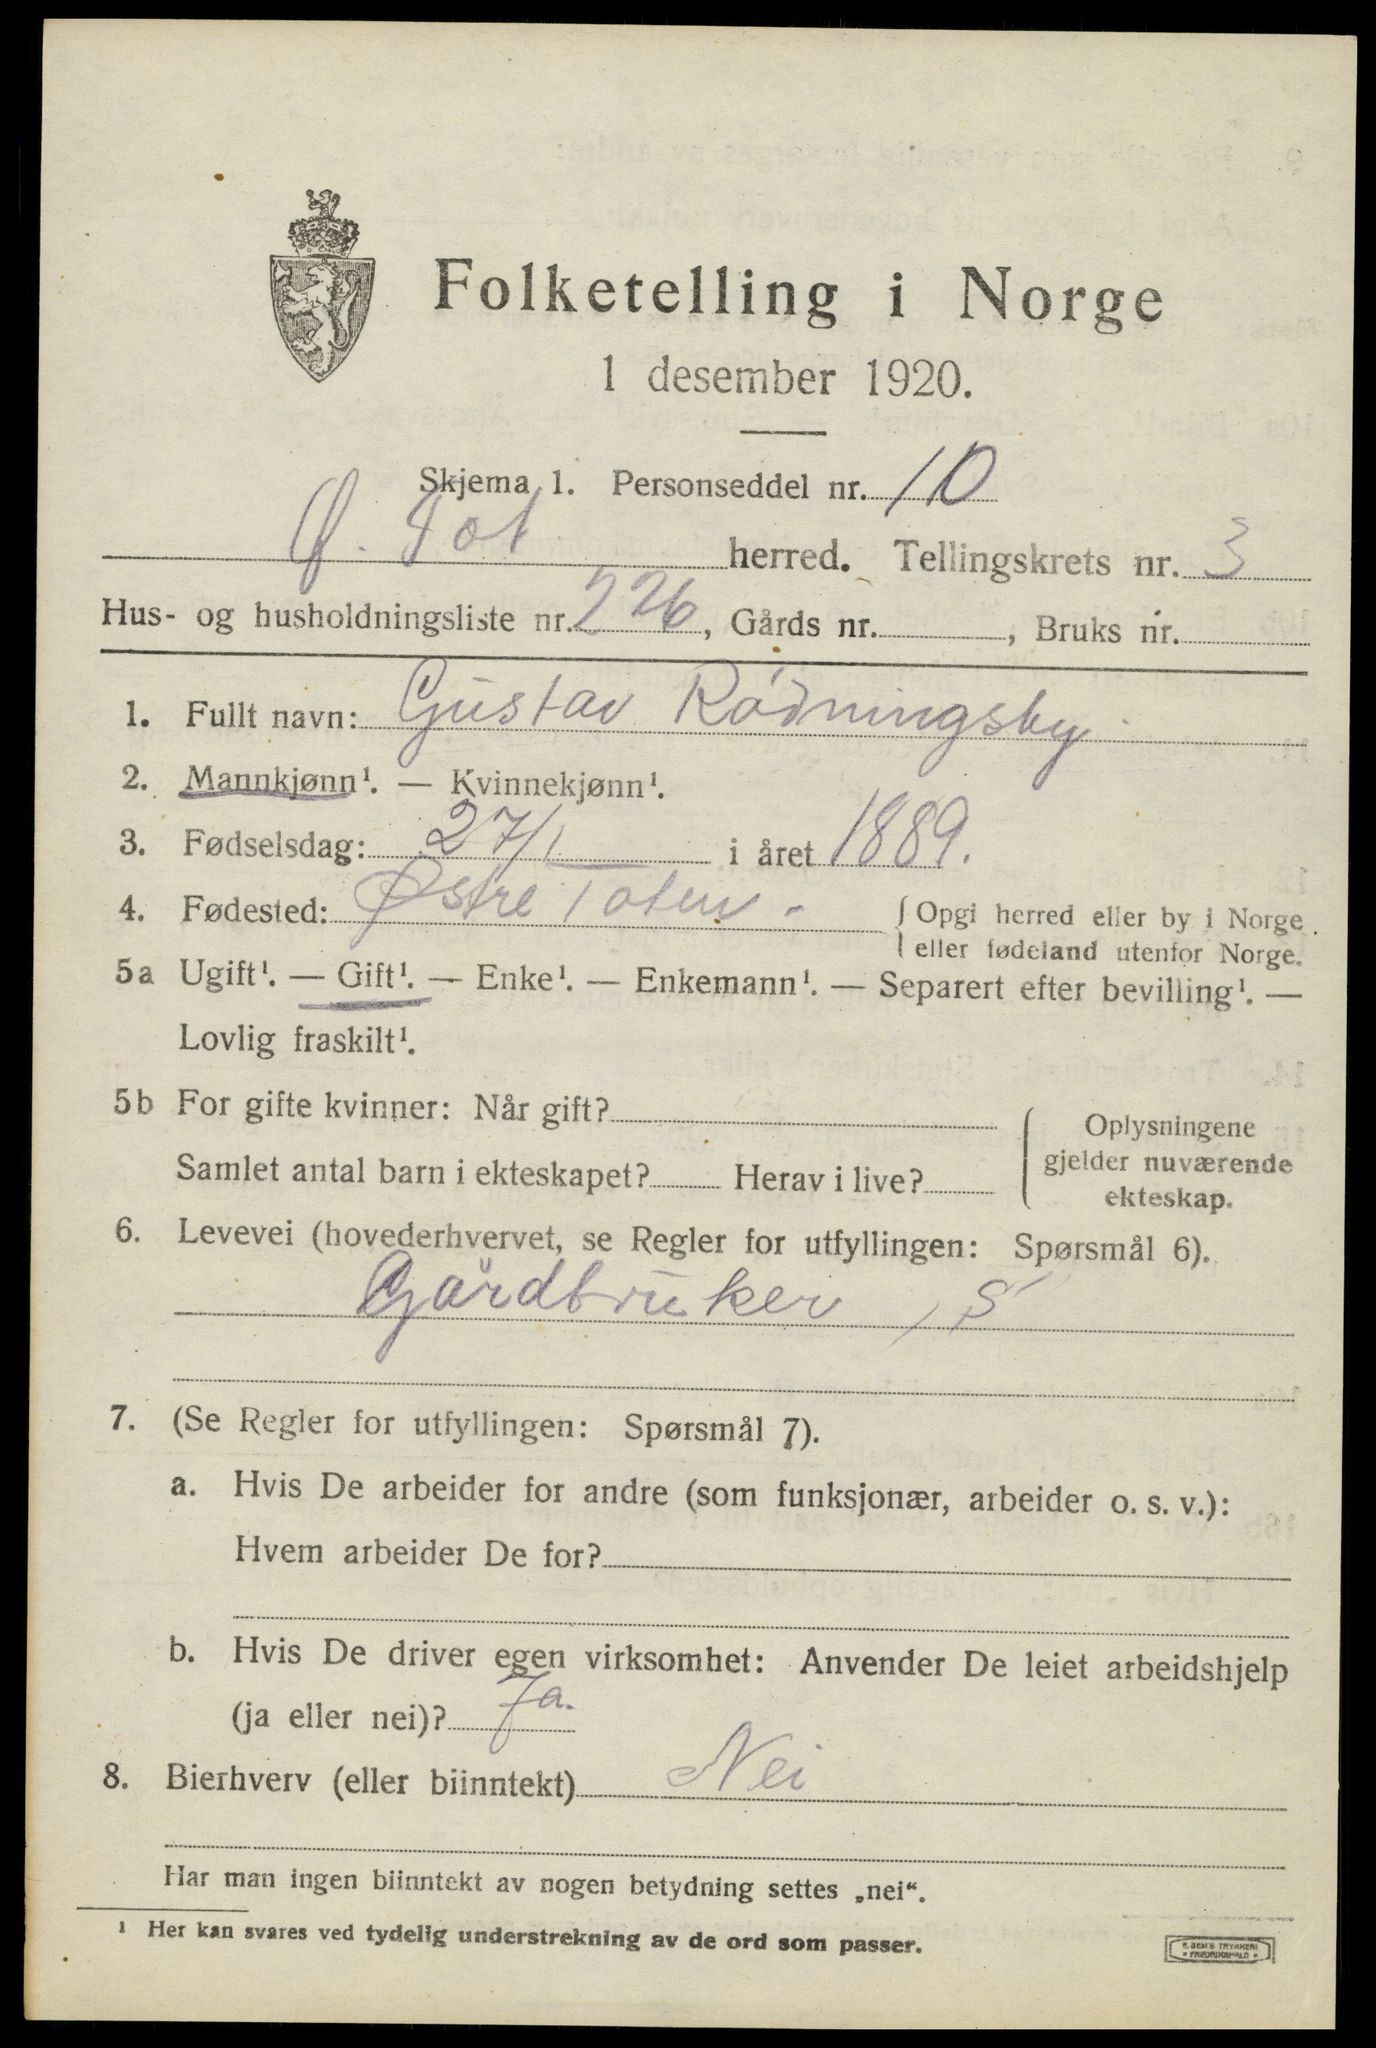 Folketelling i Norge
1 desember 1920.
Skjema 1. Personseddel nr. 10
Ø. Tot herred. Tellingskrets nr. 3
Hus- og husholdningsliste nr. 226, Gårds nr. , Bruks nr.
1. Fullt navn: Gustav Rødningsby
2. Mannkjønn¹. — Kvinnekjønn¹.
3. Fødselsdag: 27/1 i året 1889.
4. Fødested: Østre Toten - { Opgi herred eller by i Norge
eller fødeland utenfor Norge.
5a Ugift¹. — Gift¹. — Enke¹. — Enkemann¹. — Separert efter bevilling¹. —
Lovlig fraskilt¹.
5b For gifte kvinner: Når gift?
Samlet antal barn i ekteskapet? Herav i live?
Oplysningene
gjelder nuværende
ekteskap.
6. Levevei (hovederhvervet, se Regler for utfyllingen: Spørsmål 6).
Gårdbruker, S
7. (Se Regler for utfyllingen: Spørsmål 7).
a. Hvis De arbeider for andre (som funksjonær, arbeider o. s. v.):
Hvem arbeider De for?
b. Hvis De driver egen virksomhet: Anvender De leiet arbeidshjelp
(ja eller nei)? Ja.
8. Bierhverv (eller biinntekt) Nei
Har man ingen biinntekt av nogen betydning settes „nei“.
¹ Her kan svares ved tydelig understrekning av de ord som passer.
E. SEM'S TRYKKERI
FREDRIKSHALD